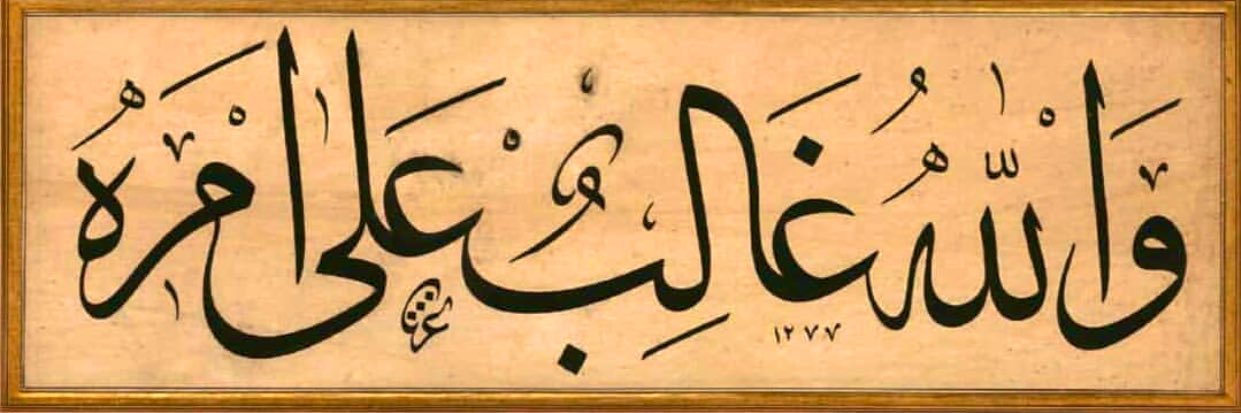 وَاللّٰهُ غَالِبٌ عَلَى اَمْرِهِ
عزت
١٢٧٧